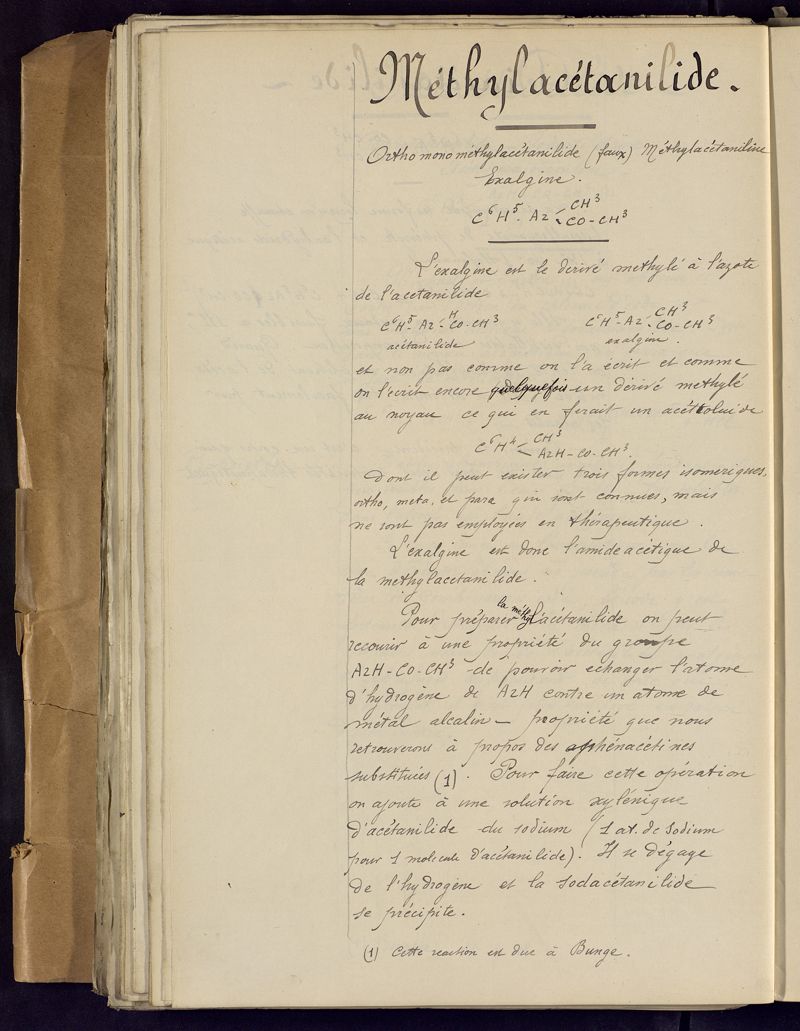 Méthylacétanilide.
Ortho mono méthylacétanilide (faux) Méthylacétaniline
Exalgine.
C⁶H⁵-Az<CH³
CO-CH³
L'exalgine est le dérivé methylé à l'azote
de l'acétanilide
C⁶H⁵-Az<H
CO-CH³
C⁶H⁵-Az<CH³
CO-CH³
acétanilide
exalgine.
et non pas comme on l'a écrit et comme
on l'écrit encore quelquefois un dérivé methylé
au noyau ce qui en ferait un acéttoluide
C⁶H⁴<CH³
AzH-CO-CH³.
Dont il peut exister trois formes isomeriques,
ortho, meta, et para qui sont connues, mais
ne sont pas employées en thérapeutique.
L'exalgine est donc l'amide acétique de
la methylacetanilide.
Pour préparer la méthyl'acétanilide on peut
recourir à une propriété du groupe
AzH-CO-CH³ de pouvoir échanger l'atome
d'hydrogène de AzH contre un atome de
métal alcalin — propriété que nous
retrouverons à propos des phénacétines
substituées (1). Pour faire cette opération
on ajoute à une solution xylénique
d'acétanilide du sodium (1 at. de Sodium
pour 1 molecule d'acétanilide). Il se dégage
de l'hydrogène et la sodacétanilide
se précipite.
(1) Cette reaction est due à Bunge.